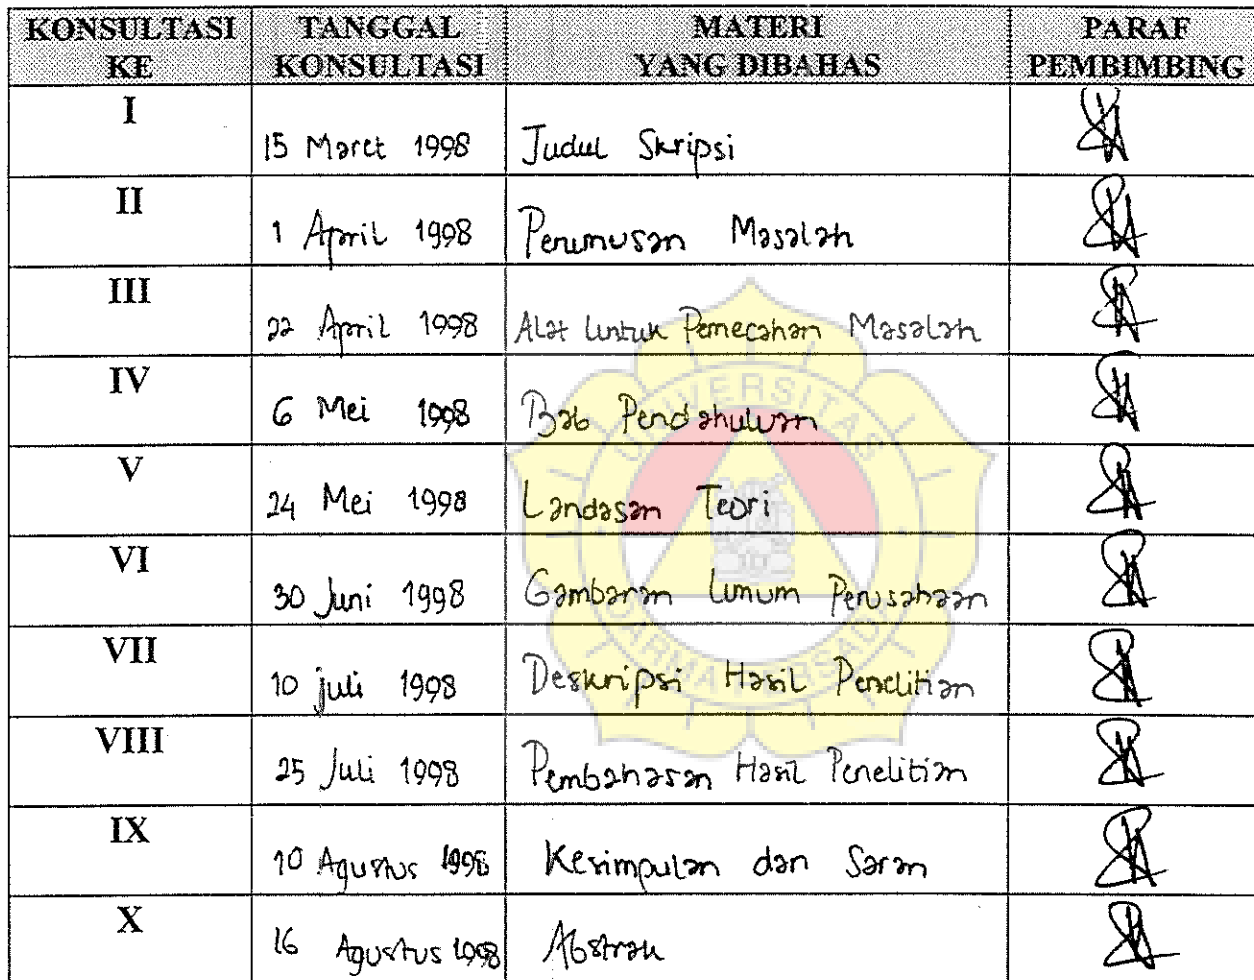 KONSULTASI KE TANGGAL KONSULTASI MATERI YANG DIBAHAS PARAF PEMBIMBING
I 15 Maret 1998 Judul Skripsi
II 1 April 1998 Perumusan Masalah
III 22 April 1998 Alat Untuk Pemecahan Masalah
IV 6 Mei 1998 Bab Pendahuluan
V 24 Mei 1998 Landasan Teori
VI 30 Juni 1998 Gambaran Umum Perusahaan
VII 10 juli 1998 Deskripsi Hasil Penelitian
VIII 25 Juli 1998 Pembahasan Hasil Penelitian
IX 10 Agustus 1998 Kesimpulan dan Saran
X 16 Agustus 1998 Abstrak
UNIVERSITAS
DARMA PERSADA